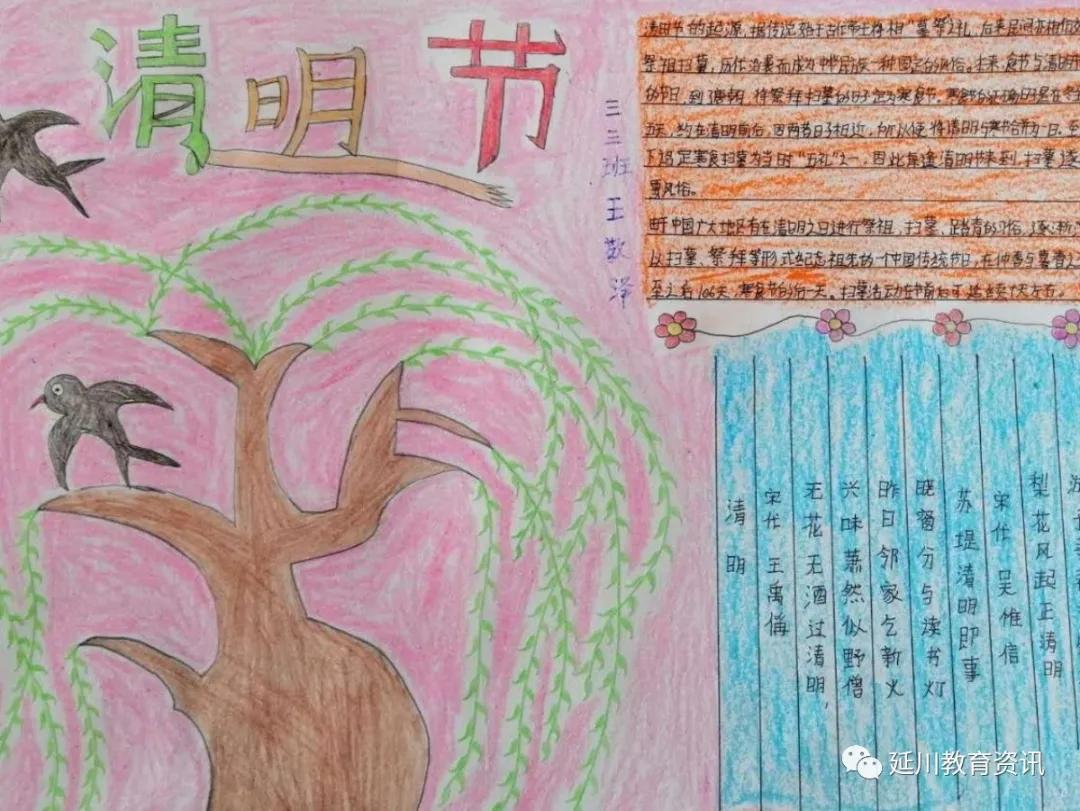 清明节
三三班王敬泽
清明节的起源，据传说始于古代帝王将相“墓祭”之礼，后来民间亦相仿效
祭祖扫墓，历代沿袭而成为中华民族一种固定的风俗。本来，寒食节与清明
的节日，到唐朝，将祭拜扫墓的日子定为寒食节。寒食节的正确日是在冬
五天，约在清明前后，因两者日子相近，所以便将清明与寒食合并为一日。至
下诏定寒食扫墓为当时“五礼”之一，因此每逢清明节来到，扫墓逐
要风俗。
中国广大地区有在清明之日进行祭祖、扫墓、踏青的习俗，逐渐
以扫墓、祭拜等形式纪念祖先的一个中国传统节日，在仲春与暮春之
至之后106天，寒食节的后一天。扫墓活动在
清明
宋代 王禹偁
无花无酒过清明，
兴味萧然似野僧
昨日邻家乞新火
晓窗分与读书灯
苏堤清明即事
宋代 吴惟信
梨花风起正清明
延川教育资讯